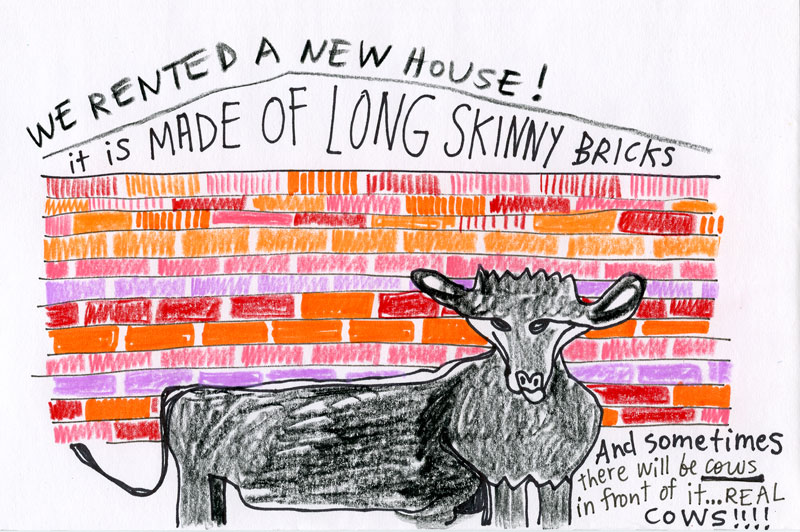 WE RENTED A NEW HOUSE!
it is MADE OF LONG SKINNY BRICKS
And sometimes
there will be cows
in front of it...REAL
COWS!!!!